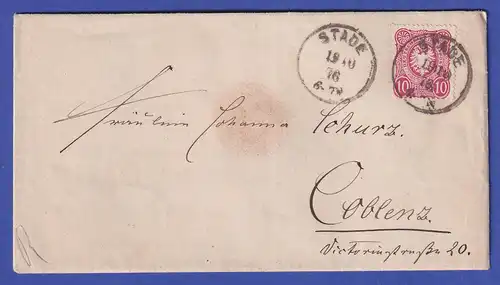 STADE
19 10
76
6-7N
STADE
19 10
76
N
10 10
Fräulein Johanna Schurz.
Coblenz.
Victoriastraße 20.